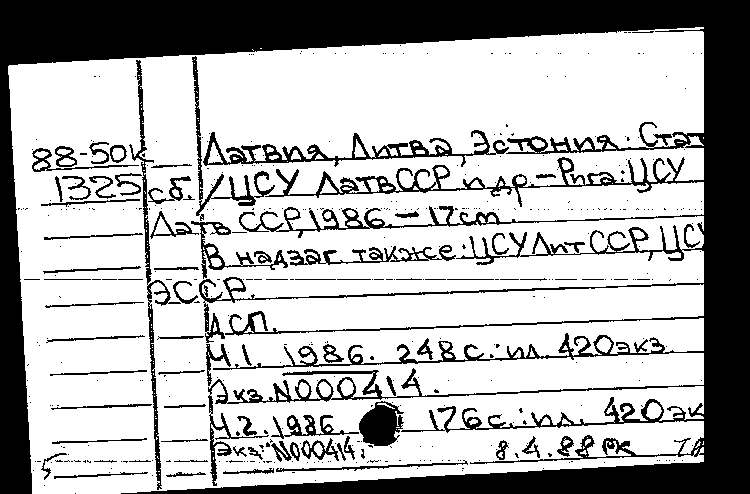 88-50к Латвия, Литва, Эстония: Стат
1325 сб. /ЦСУ ЛатвССР и др.-Рига: ЦСУ
Латв ССР, 1986.- 17см.
В надзаг. также: ЦСУ Лит ССР, ЦСУ
ЭССР.
ДСП.
Ч.1. 1986. 248 с.: ил. 420экз.
Экз. N000414.
Ч.2. 1986. 176 с.: ил. 420 эк
Экз. N000414. 8.4.88 РК